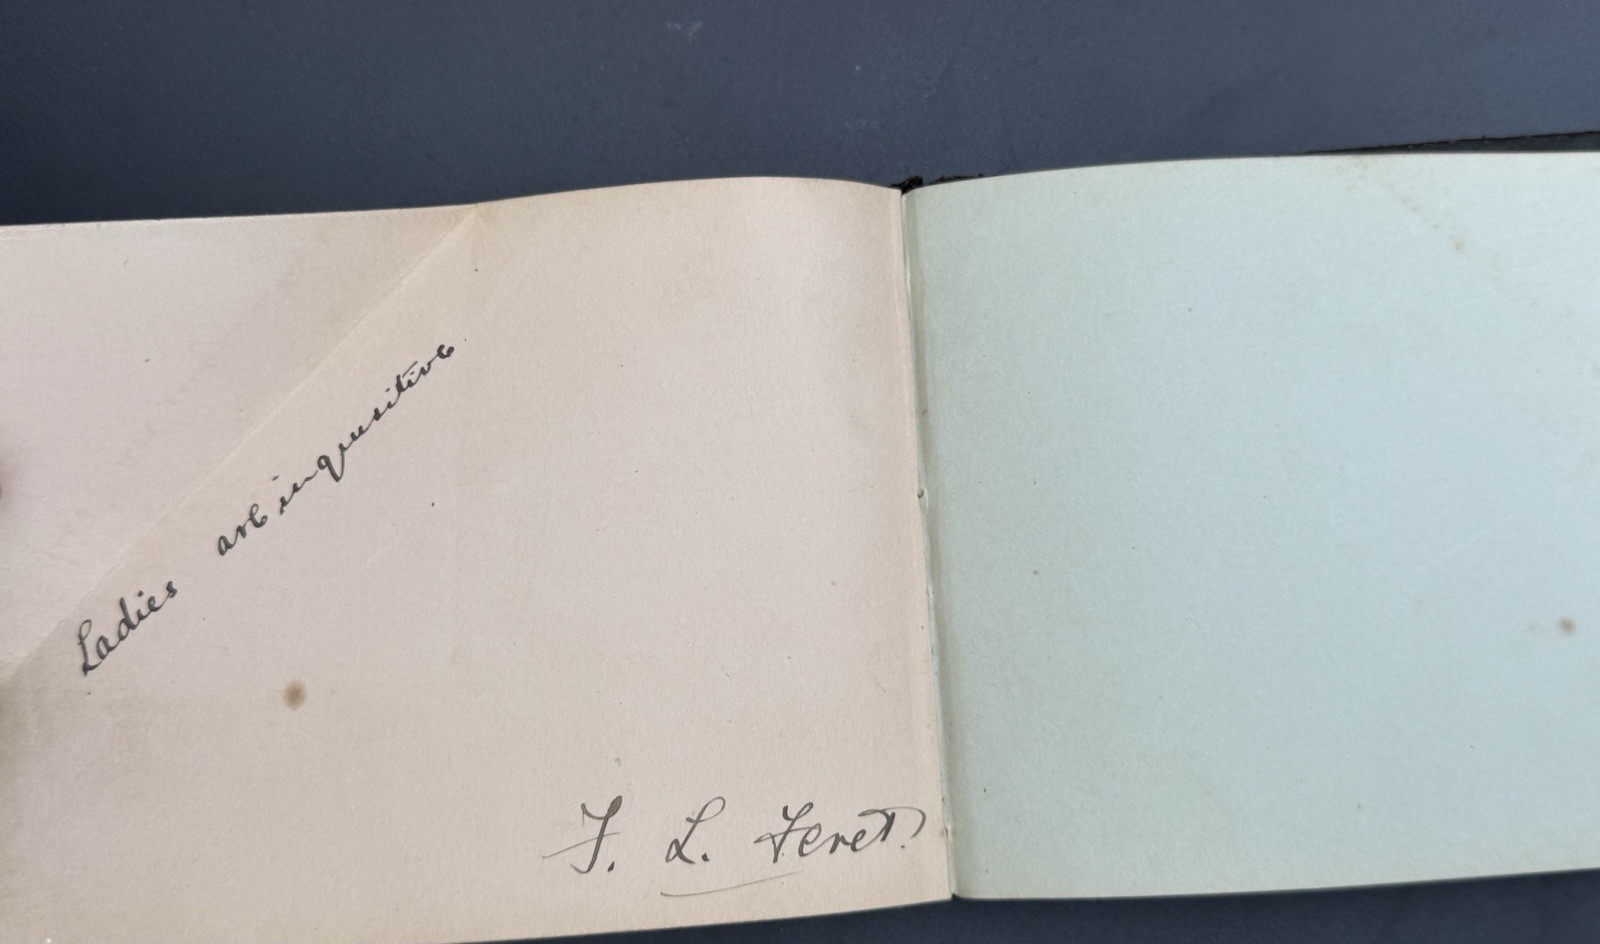 Ladies are inquisitive
F. L. Feret.